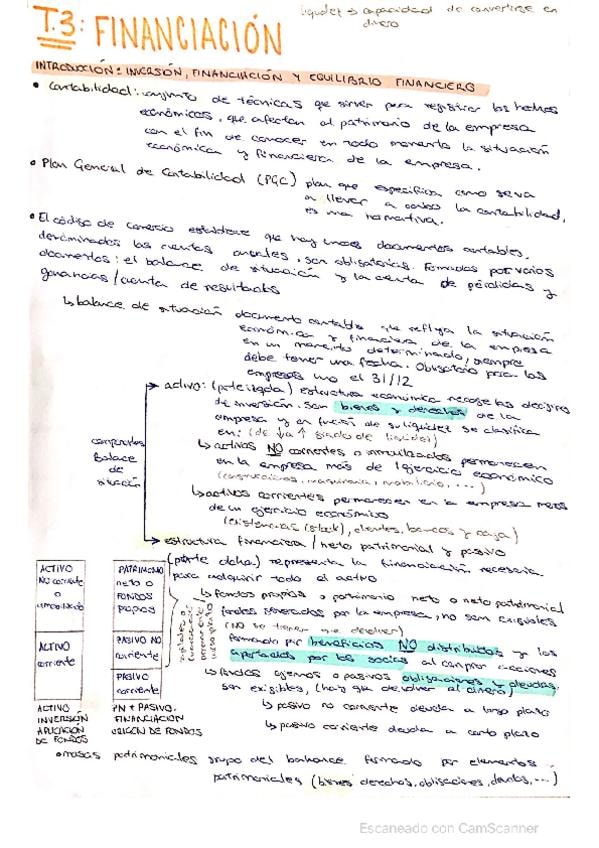 liquidez → capacidad de convertirse en
dinero
T.3: FINANCIACIÓN
INTRODUCCIÓN: INVERSIÓN, FINANCIACIÓN Y EQUILIBRIO FINANCIERO
• Contabilidad: conjunto de técnicas que sirven para registrar los hechos
económicos, que afectan al patrimonio de la empresa
con el fin de conocer en todo momento la situación
económica y financiera de la empresa.
• Plan General de Contabilidad (PGC) plan que especifica como se va
a llevar a cabo la contabilidad,
es una normativa.
• El código de comercio establece que hay unos documentos contables,
denominados las cuentas anuales, son obligatorias. Formadas por varios
documentos: el balance de situación y la cuenta de pérdidas y
ganancias / cuenta de resultados
↳ balance de situación documento contable que refleja la situación
económica y financiera de la empresa
en un momento determinado, siempre
debe tener una fecha. Obligatorio para las
empresas uno el 31/12
→ activo: (parte izqda) estructura económica recoge las decisiones
de inversión. Son bienes y derechos de la
empresa y en función de su liquidez se clasifica
en: (de ↓ a ↑ grado de liquidez)
↳ activos NO corrientes o inmovilizados permanecen
en la empresa más de 1 ejercicio económico
(construcciones, maquinaria, mobiliario, ...)
↳ activos corrientes permanecen en la empresa menos
de un ejercicio económico
(existencias (stock), clientes, bancos y caja)
componentes
balance
de
situación
→ estructura financiera / neto patrimonial y pasivo
(parte dcha) representa la financiación necesaria
para adquirir todo el activo
↳ fondos propios o patrimonio neto o neto patrimonial
fondos generados por la empresa, no son exigibles
(NO se tienen que devolver)
formado por beneficios NO distribuidos y los
aportados por los socios al comprar acciones
↳ fondos ajenos o pasivos obligaciones y deudas,
son exigibles, (hay que devolver el dinero)
↳ pasivo no corriente deuda a largo plazo
↳ pasivo corriente deuda a corto plazo
ACTIVO
NO corriente
o
inmovilizado
PATRIMONIO
neto o
FONDOS
PROPIOS
ACTIVO
corriente
PASIVO NO
corriente
PASIVO
corriente
ACTIVO
INVERSIÓN
APLICACIÓN
DE FONDOS
PN + PASIVO.
FINANCIACIÓN
ORIGEN DE FONDOS
• masas patrimoniales grupo del balance formado por elementos
patrimoniales (bienes, derechos, obligaciones, deudas, ...)
Escaneado con CamScanner